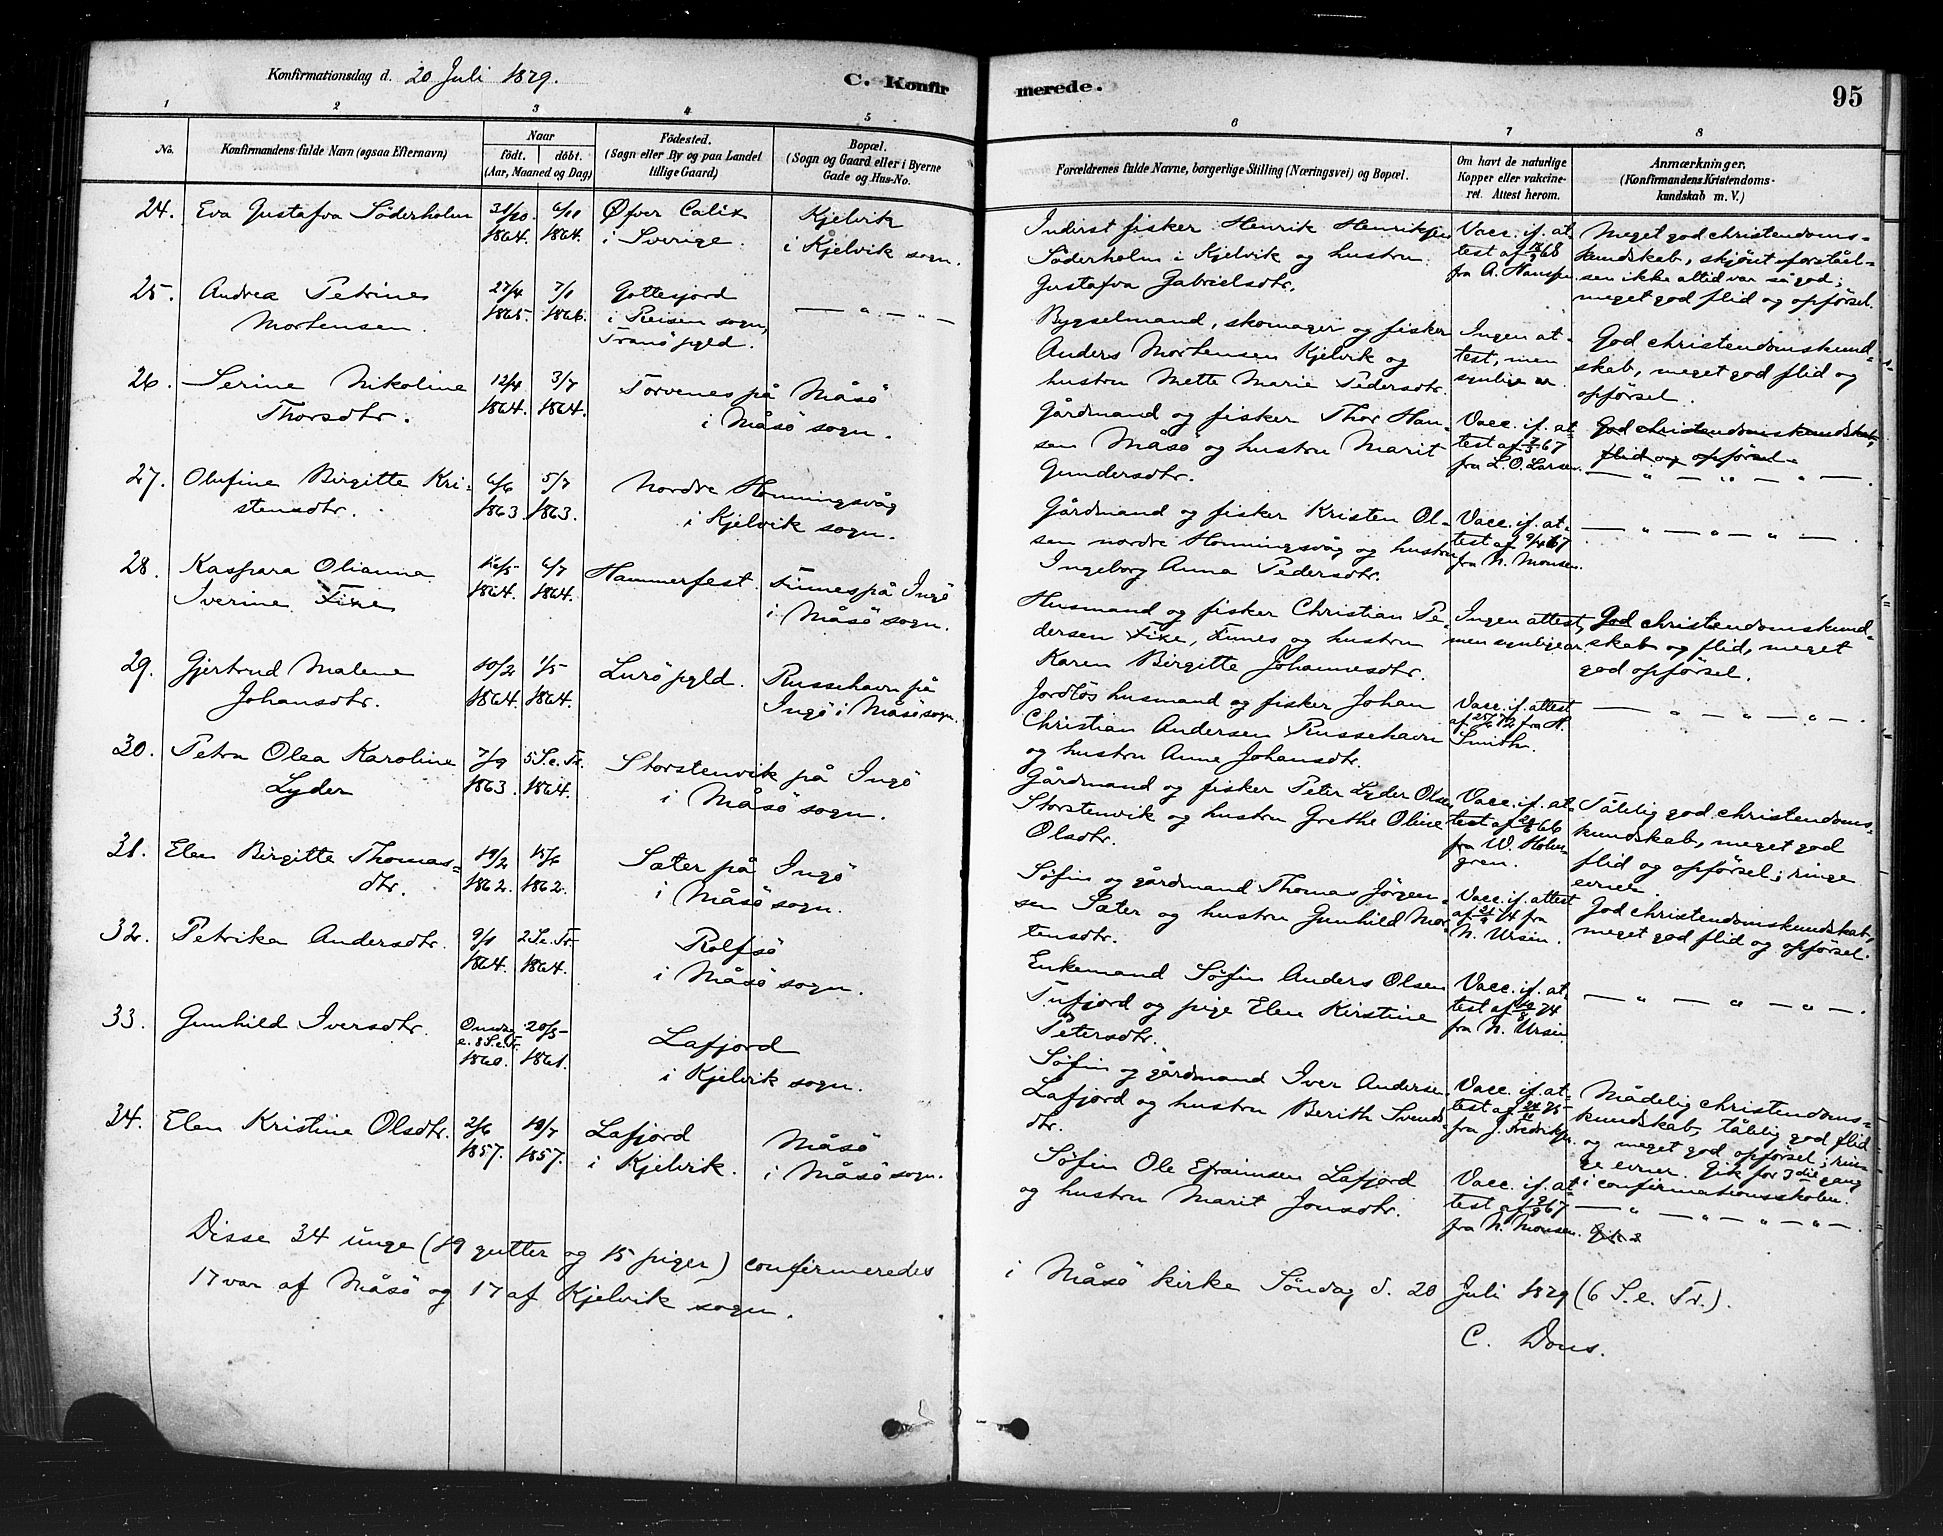 Konfirmationsdag d. 20 Juli 1879.
C. Konfir
merede.
95
1 2 3 4 5 6 7 8
No.
Konfirmandens fulde Navn (ogsaa Efternavn)
Naar
født. døbt.
(Aar, Maaned og Dag)
Födested.
(Sogn eller By og paa Landet
tillige Gaard)
Bopæl.
(Sogn og Gaard eller i Byerne
Gade og Hus-No.
Forældrenes fulde Navne, borgerlige Stilling (Næringsvei) og Bopæl.
Om havt de naturlige
Kopper eller vakcine-
ret. Attest herom.
Anmærkninger.
(Konfirmandens Kristendoms-
kundskab m. V.)
24. Eva Gustafva Söderholm
31/10 1864. 6/11 1864.
Öfver Calix
i Sverige.
Kjelvik
i Kjelvik sogn.
Inderst fisker Henrik Henriksen
Söderholm i Kjelvik og hustru
Gustafva Gabrielsdtr.
Vacc. if. at-
test af 68
fra A. Hanssen
Meget god christendoms-
kundskab, skjönt forståel-
sen ikke altid var så god;
meget god flid og opförsel.
25. Andrea Petrines
Mortensen.
27/4 1865. 7/1 1866.
Gottesjord
i Reisen sogn,
Tranö pgld.
— „ — „ —
Bygselmand, skomager og fisker
Anders Mortensen Kjelvik og
hustru Mette Marie Pedersdtr.
Ingen at-
test, men
synlige ar
God christendomskund-
skab, meget god flid og
opförsel.
26. Serine Nikoline
Thorsdtr.
12/4 1864. 3/7 1864.
Torvenes på Måsö
i Måsö sogn.
Gårdmand og fisker Thor Han-
sen Måsö og hustru Marit
Gundersdtr.
Vacc. if. at-
test af 67
fra L. O. Larsen.
God christendomskundskab,
flid og opförsel
— „ — „ — „ —.
27. Olufine Birgitte Kri-
stensdtr.
6/6 1863. 5/7 1863.
Nordre Honningsvåg
i Kjelvik sogn.
Gårdmand og fisker Kristen Ol-
sen nordre Honningsvåg og hustru
Ingeborg Anna Pedersdtr.
Vacc. if. at-
test af 9/4 67
fra N. Monsen.
— „ — „ — „ —.
28. Kaspara Olianna
Iverine Fixe
16/5 1864. 6/7 1864.
Hammerfest.
Finnes på Ingö
i Måsö sogn.
Husmand og fisker Christian Pe-
dersen Fixe, Finnes og hustru
Karen Birgitte Johannesdtr.
Ingen attest,
men synlige ar
God christendomskund-
skab og flid, meget
god opförsel.
29. Gjertrud Malene
Johansdtr.
10/2 1864. 1/5 1864.
Lurö pgld.
Russehavn på
Ingö i Måsö sogn.
Jordlös husmand og fisker Johan
Christian Andersen Russehavn
og hustru Anne Johansdtr.
Vacc. if. attest
af 25/6 72 fra H.
Smith.
— „ — „ — „ —.
30. Petra Olea Karoline
Lyder
7/9 1863. 5 S. e. Tr. 1864.
Storstenvik på Ingö
i Måsö sogn.
Gårdmand og fisker Peter Lyder Olsen
Storstenvik og hustru Grethe Oline
Olsdtr.
Vacc. if. at-
test af 66
fra W. Holm-
gren.
Tålelig god christendoms-
kundskab, meget god
flid og opförsel; ringe
evner.
31. Elen Birgitte Thomas-
dtr.
19/2 1862. 15/6 1862.
Sæter på Ingö
i Måsö sogn.
Söfin og gårdmand Thomas Jörgen-
sen Sæter og hustru Gunhild Mor-
tensdtr.
Vacc. if. attest
af 74 fra
N. Ursin.
God christendomskundskab,
meget god flid og opförsel.
32. Petrika Andersdtr.
9/1 1864. 2 S. e. Tr. 1864.
Rolfsö
i Måsö sogn.
Enkemand Söfin Anders Olsen
Tufjord og pige Elen Kirstine
Petersdtr.
Vacc. if. at-
test af 74
fra N. Ursin
— „ — „ — „ —.
33. Gunhild Iversdtr.
Onsdag
e. 8 S. e. Tr.
1860. 20/5 1861.
Lafjord
i Kjelvik sogn.
Söfin og gårdmand Iver Andersen
Lafjord og hustru Berith Svends-
dtr.
Vacc. if. at-
test af 75
fra J. Fredriksen
Mådelig christendoms-
kundskab, tålelig god flid
og meget god opförsel; rin-
ge evner. Gik for 3die gang
i confirmationsskolen.
34. Elen Kristine Olsdtr.
2/6 1857. 19/7 1857.
Lafjord
i Kjelvik.
Måsö
i Måsö sogn.
Söfin Ole Efraimsen Lafjord
og hustru Marit Jonsdtr.
Vacc. if. at-
test af 67
fra N. Monsen.
— „ — „ — „ —.
Gik
Disse 34 unge (19 gutter og 15 piger) confirmeredes
i Måsö kirke Söndag d. 20 Juli 1879 (6 S. e. Tr.).
17 var af Måsö og 17 af Kjelvik sogn.
C. Dons.